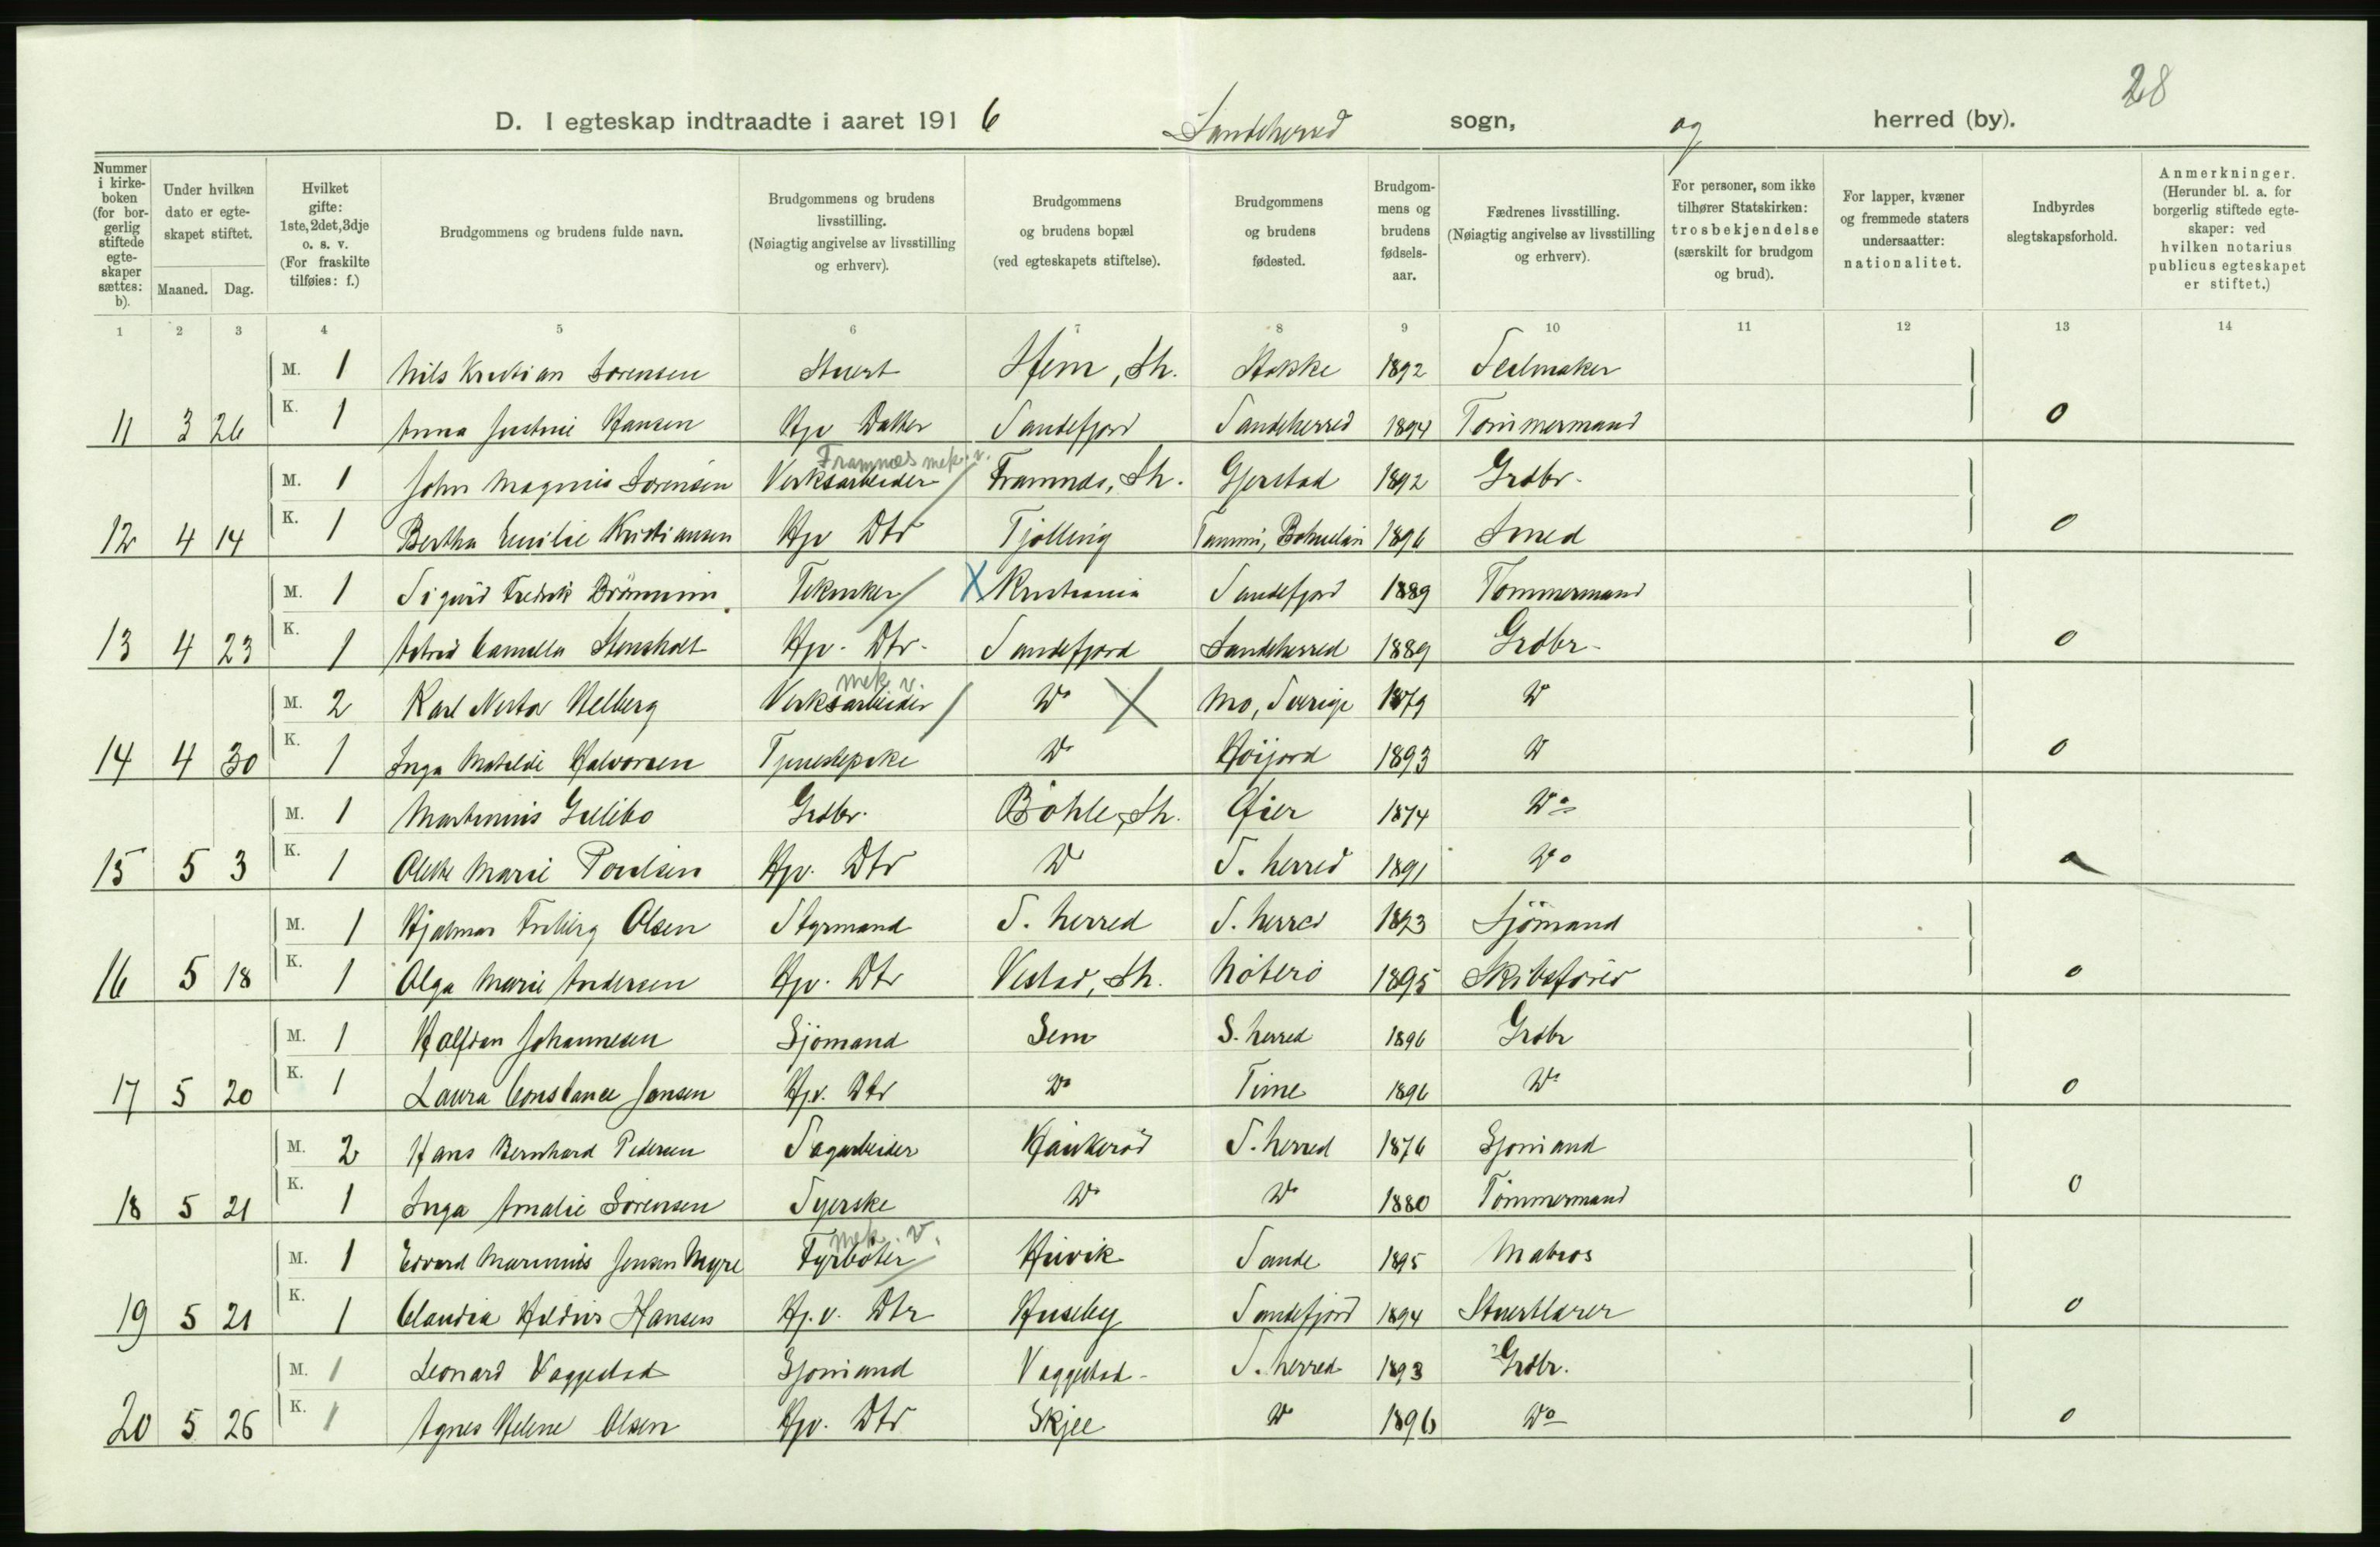 28
D. I egteskap indtraadte i aaret 1916 Sandeherred sogn, og herred (by).
Nummer i kirkeboken (for borgerlig stiftede egteskaper sættes: b).
Under hvilken dato er egteskapet stiftet.
Maaned. Dag.
Hvilket gifte: 1ste, 2det, 3dje o. s. v. (For fraskilte tilføies: f.)
Brudgommens og brudens fulde navn.
Brudgommens og brudens livsstilling. (Nøiagtig angivelse av livsstilling og erhverv).
Brudgommens og brudens bopæl (ved egteskapets stiftelse).
Brudgommens og brudens fødested.
Brudgommens og brudens fødselsaar.
Fædrenes livsstilling. (Nøiagtig angivelse av livsstilling og erhverv).
For personer, som ikke tilhører Statskirken: trosbekjendelse (særskilt for brudgom og brud).
For lapper, kvæner og fremmede staters undersaatter: nationalitet.
Indbyrdes slegtskapsforhold.
Anmerkninger. (Herunder bl. a. for borgerlig stiftede egteskaper: ved hvilken notarius publicus egteskapet er stiftet.)
1 2 3 4 5 6 7 8 9 10 11 12 13 14
M. 1 Nils Kristian Sørensen Stuert Hem, Sh. Stokke 1892 Seilmaker
11 3 26 K. 1 Anna Justine Hansen Hjv Datter Sandefjord Sandeherred 1894 Tømmermand 0
Framnæs mek. v.
M. 1 John Magnus Sørensen Verksarbeider Framnæs, Sh. Gjerstad 1892 Grdbr.
12 4 14 K. 1 Bertha Emilie Kristiansen Hjv Dtr Tjølling 1896 Smed 0
M. 1 Sigurd Fredrik Tekniker X Kristiania Sandefjord 1889 Tømmermand
13 4 23 K. 1 Astrid Camilla Stensholt Hjv. Dtr. Sandefjord Sandeherred 1889 Grdbr. 0
mek v.
M. 2 Karl Nestor Helberg Verksarbeider Do X Mo, Sverige 1879 Do
14 4 30 K. 1 Inga Matilde Halvorsen Tjenestepike Do Høijord 1893 Do 0
M. 1 Martinius Grdbr. Bøhle, Sh. Øier 1874 Do
15 5 3 K. 1 Marie Poulsen Hjv. Dtr Do S. herred 1891 Do 0
M. 1 Hjalmar Olsen Styrmand S. herred S. herred 1893 Sjømand
16 5 18 K. 1 Olga Marie Andersen Hjv. Dtr Vestad, Sh. Nøterø 1895 Skibsfører 0
M. 1 Halfdan Johannesen Sjømand Sem S. herred 1896 Grdbr
17 5 20 K. 1 Laura Constance Jansen Hjv. Dtr Do Time 1896 Do 0
M. 2 Hans Bernhard Pedersen Sagarbeider Haukerød S. herred 1876 Sjømand
18 5 21 K. 1 Inga Amalie Sørensen Syerske Do Do 1880 Tømmermand 0
mek. v.
M. 1 Edvard Marinius Jensen Myre Fyrbøter Huvik Sande 1895 Matros
19 5 21 K. 1 Claudia Hansen Hj.v. Dtr Huseby Sandefjord 1894 0
M. 1 Leonard Vaggestad Sjømand Vaggestad S. herred 1893 Grdbr.
20 5 26 K. 1 Agnes Helene Olsen Hjv. Dtr Skjee Do 1896 Do 0